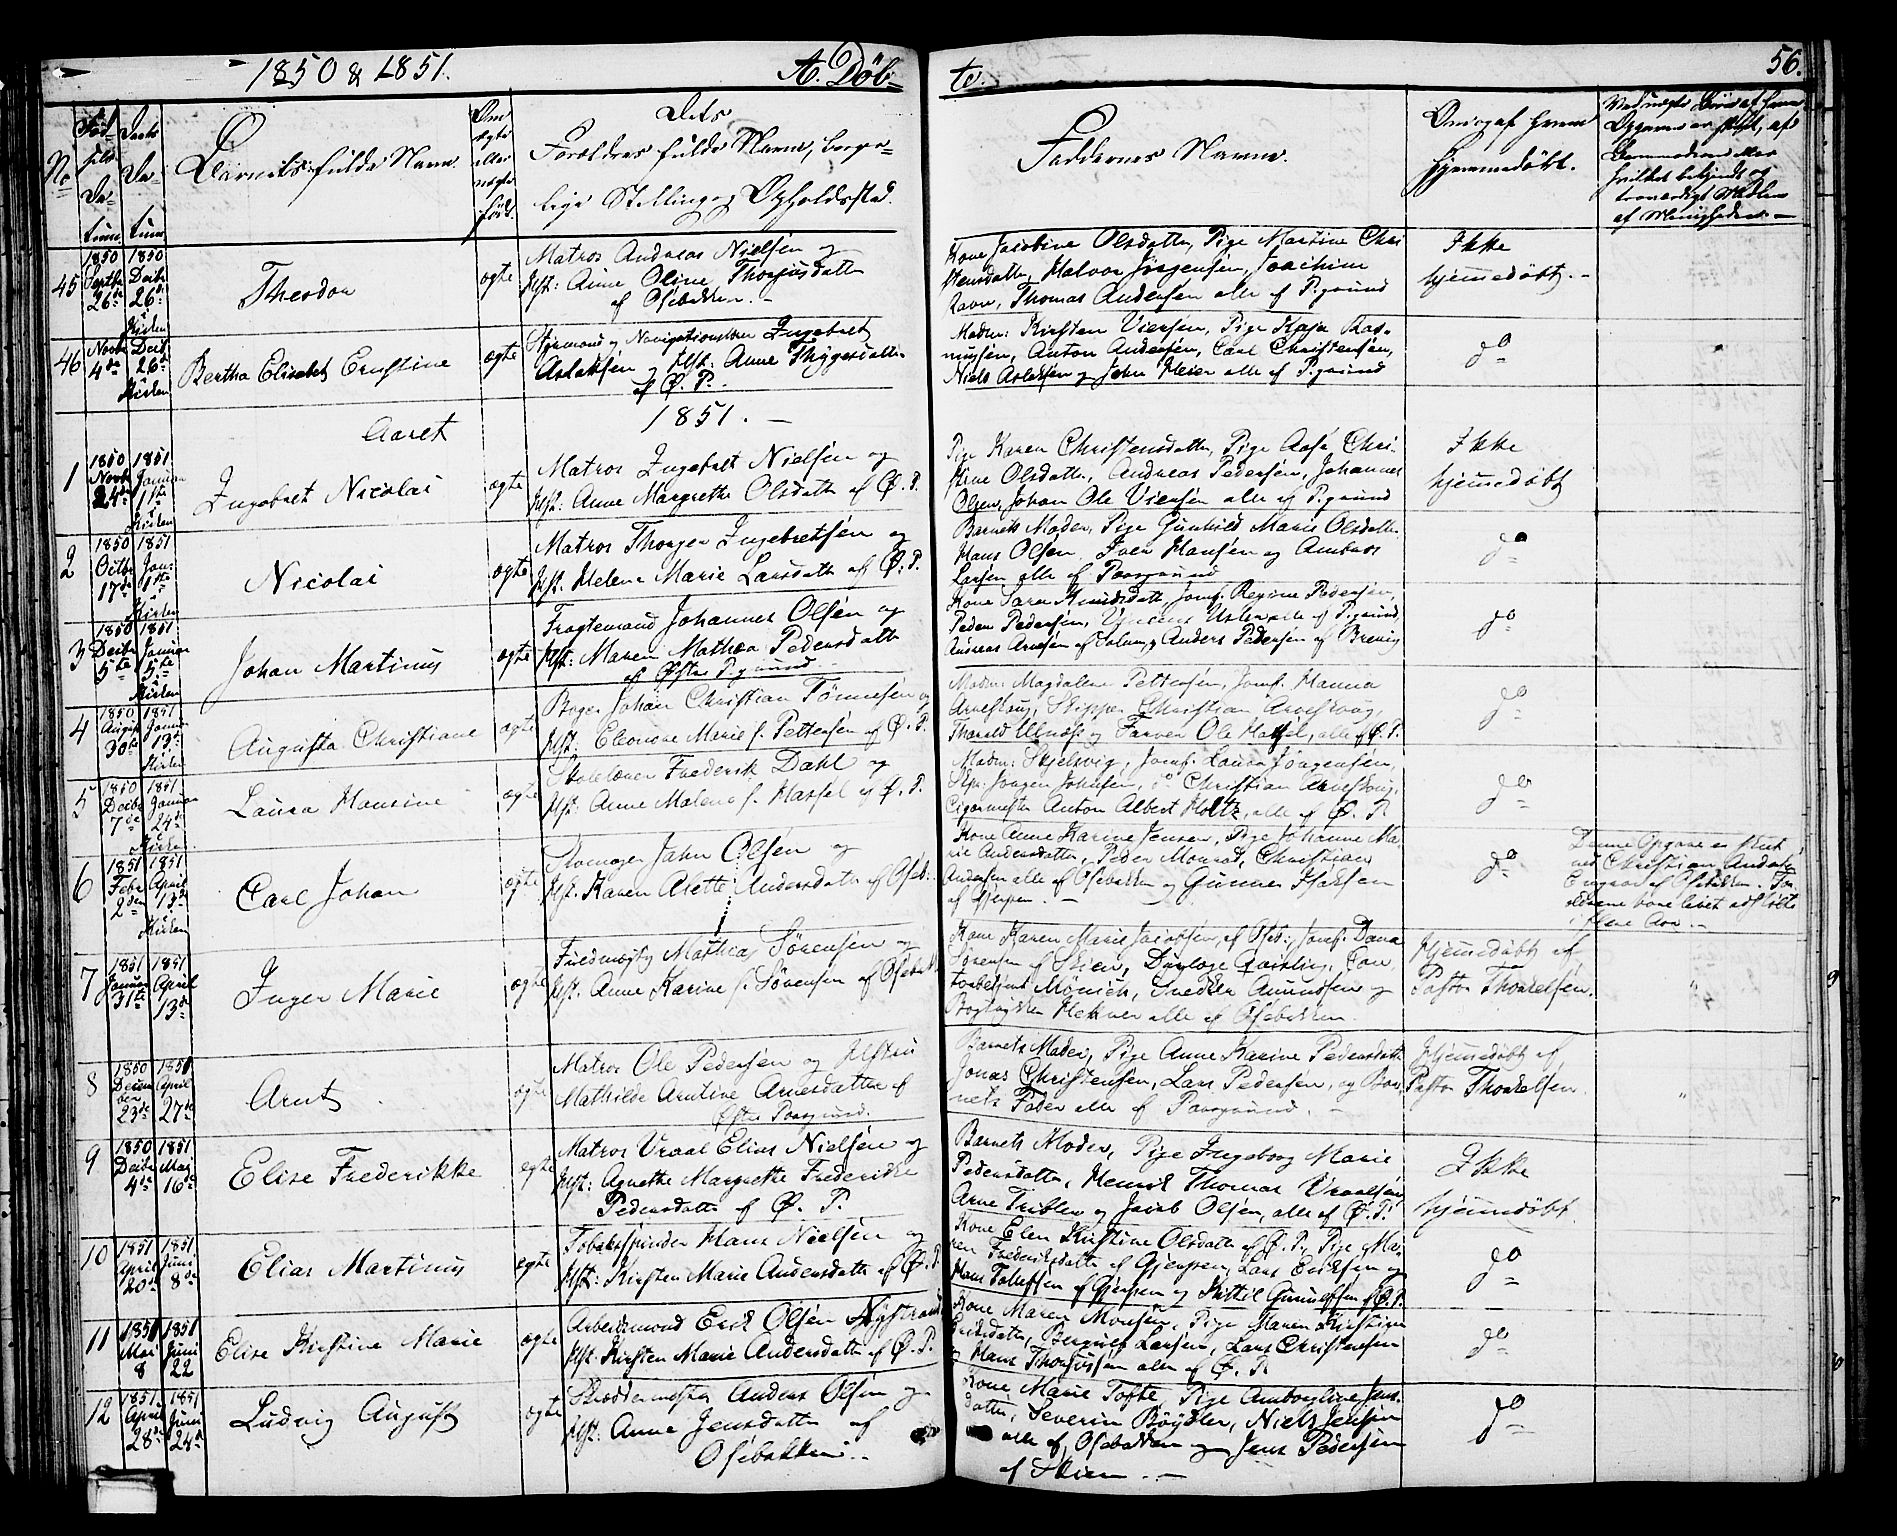 1850 & 1851.
A. Døb-
te.
56.
No
Barnets fulde Navn.
Dets
Forældres fulde Navn, borger-
lige Stilling og Opholdssted.
Faddernes Navne.
Om og af hvem
hjemmedøbt.
45
1850
Septbr
26de
1850
Decbr
26de
Kirken
Theodor
ægte
Matros Andreas Nielsen og
Hst: Anne Oline Thorjusdatter
af Osebakken. -
Kone Jacobine Olsdatter, Pige Martine Chri
stensdatter, Halvor Jørgensen, Joachim
Ravn, Thomas Andersen alle af P.grund
Ikke
hjemmedøbt. -
46
Novbr
4de
Decbr
26de
Kirken
Bertha Elisabet Ernstine
ægte
Styrmand og Navigationslærer Ingebret
Aslaksen og Hst: Anne Thygesdatter
af Ø. P.
Madm: Kirsten Viersen, Pige Kaja Ras-
mussen, Anton Andersen, Carl Christensen,
Niels Aslaksen og John Meier alle af P.grund
do
Aaret 1851. -
1
1850
Novbr
24de
1851
Januar
1ste
Kirken
Ingebret Nicolai
ægte
Matros Ingebret Nielsen og
Hst: Anne Margrethe Olsdatter af Ø. P.
Pige Karen Christensdatter, Pige Aase Chri-
stine Olsdatter, Andreas Pedersen, Johannes
Olsen, Johan Ole Viersen alle af P.grund
Ikke
hjemmedøbt
2
1850
Octbr
17de
1851
Jan:
1ste
Kirken
Nicolai
ægte
Matros Thorger Ingebretsen og
Hst. Helene Marie Larsdatter af Ø. P.
Barnets Moder, Pige Gunhild Marie Olsdatter
Hans Olsen, Iver Hansen og Ambros
Larsen alle af Porsgrund
do
3
1850
Decbr
5te
1851
Januar
5te
Kirken
Johan Martinus
ægte
Fragtemand Johannes Olsen og
Hst: Maren Mathea Pedersdatter
af Østre P.grund
Kone Sara Knudsdatter, Jomf. Regine Pedersen,
Peder Pedersen, alle af P.grund,
Andreas Arnesen af og Anders Pedersen af Brevig
do
4
1850
August
30te
1851
Januar
13de
Kirken
Augusta Christiane
ægte
Bager Johan Christian Tønnesen og
Hst: Eleonore Marie f. Pettersen af Ø. P.
Madm: Magdalene Pettersen, Jomf. Hanna
Arveskoug, Skipper Christian Arveskoug,
Tharald Ulnæs og Farver Ole Hassel, alle af Ø. P.
do
5
1850
Decbr
7de
1851
Januar
24de
Kirken
Laura Hansine
ægte
Skolelærer Frederik Dahl og
Hst: Anne Malene f. Hassel af Ø. P.
Madm: Skjelsvig, Jomf. Laura Jørgensen,
Skp: Jørgen Johnsen, do Christian Arveskoug,
Cigarmester Anton Albert Holtz, alle af Ø. P.
do
6
1851
Febr
2den
1851
April
13de
Kirken
Carl Johan
ægte
Skomager Jahn Olsen og
Hst. Karen Alette Andersdatter af Oseb:
Kone Anne Karine Jensen, Pige Johanne Ma
rie Andersdatter, Peder Monrad, Christian
Andersen alle af Osebakken og Gunner Isaksen
af Gjerpen. -
do
7
1851
Januar
31te
1851
April
13de
Inger Marie
ægte
Fuldmægtig Mathias Sørensen og
Hst. Anne Karine f. Sørensen af Osebak.
Kone Karen Marie Jacobsen, af Oseb:, Jomf. Dana
Sørensen af Skien, Con
toirbetjent Mønich, Snedker Amundsen og
alle af Osebakken.
Hjemmedøbt af
Pastor Thorkelsen.
8
1850
Decem
ber
23de
1851
April
27de
Arnt
ægte
Matros Ole Pedersen og Hstru
Mathilde Arntine Arnesdatter af
Østre Porsgrund.
Barnets Moder, Pige Anne Karine Pedersdatter
Jonas Christensen, Lars Pedersen, og Bar
nets Fader alle af Porsgrund. -
Hjemmedøbt af
Pastor Thorkelsen.
9
1850
Decbr
4de
1851
May
16de
Elise Frederikke
ægte
Matros Vraal Elias Nielsen og
Hst: Agnethe Margrethe Frederikke
Pedersdatter af Ø. P.
Barnets Moder, Pige Ingeborg Marie
Pedersdatter, Henrik Thomas Vraalsen,
Arne Tribler og Jacob Olsen, alle af Ø. P.
Ikke
hjemmedøbt.
10
1851
April
20de
1851
Juni
8de
Elias Martinus
ægte
Tobakspinder Hans Nielsen og
Hst: Kirsten Marie Andersdatter af Ø. P.
Kone Elen Kirstine Olsdatter af Ø. P., Pige Ma-
ren Frederiksdatter af Gjerpen, Lars Eriksen og
Hans Tollefsen af Gjerpen og Kittil Gunnulfsen af Ø. P.
do
11
1851
Mai
8
1851
Juni
22
Elise Kirstine Marie
ægte
Arbeidsmand Erik Olsen Nystrand
Hst: Kirsten Marie Andersdatter af Ø. P.
Kone Maren Monsen, Pige Maren Kirstine
Eriksdatter, Larsen, Lars Christensen
og Hans Thorjussen alle af Ø. P.
do
12
1851
April
28de
1851
Juni
24de
Ludvig August
ægte
Skreddermester Anders Olsen og
Hst: Anne Jensdatter af
Osebakken.
Kone Marie Tofte, Pige Amborgline Jens-
datter, Severin Bøybler, Niels Jensen
alle af Osebakken og Jens Pedersen
af Skien. -
do